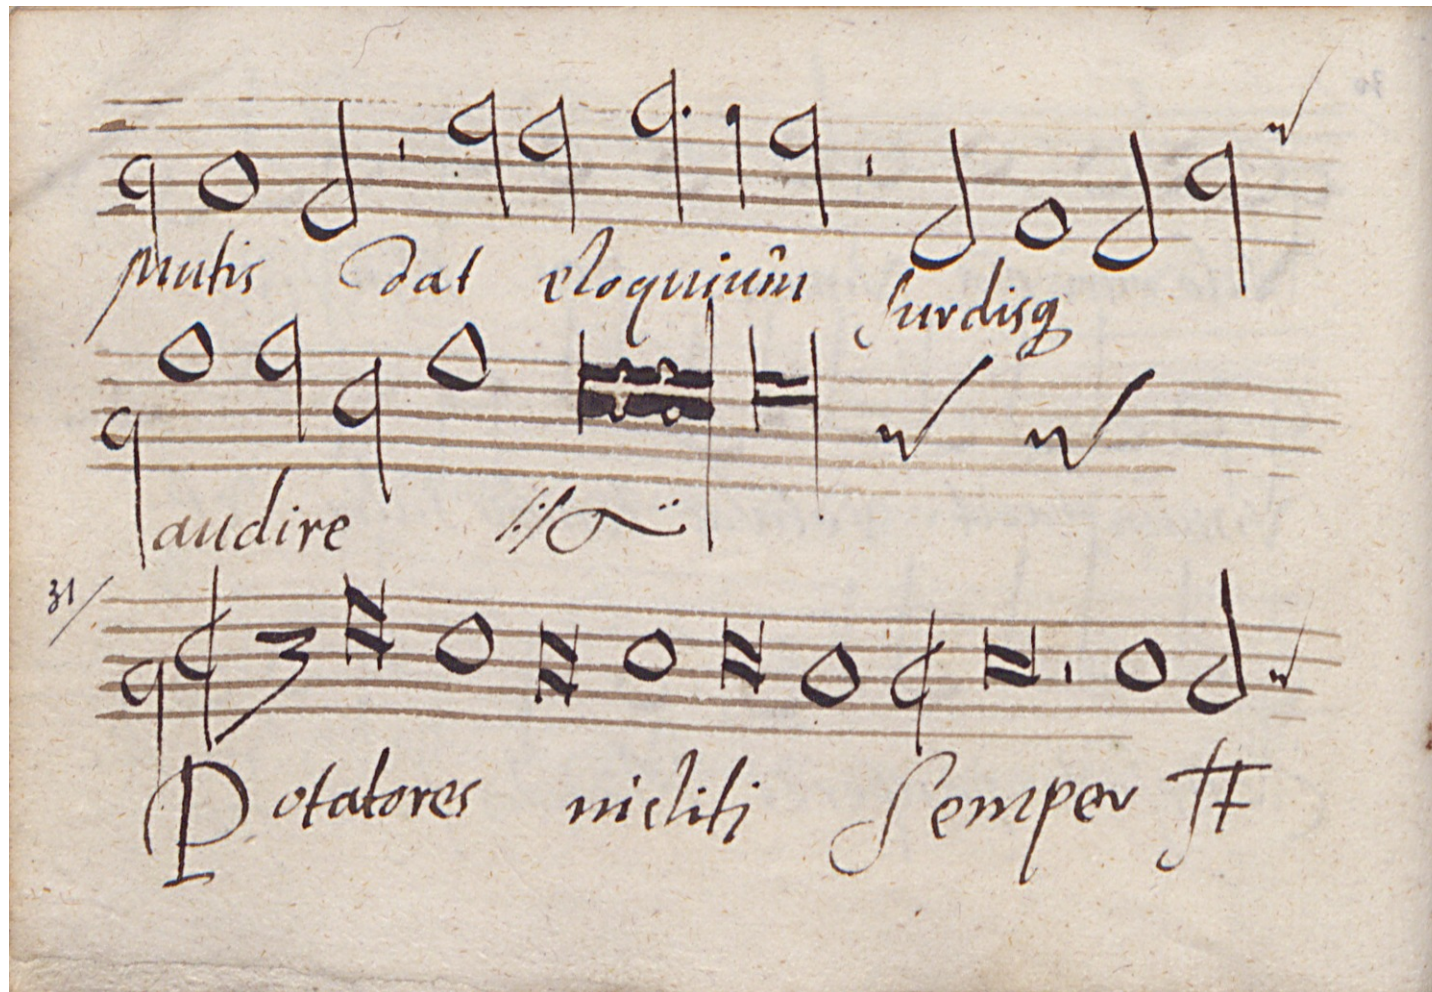 mutis dat eloquium surdisq
audire
31
Potatores incliti semper